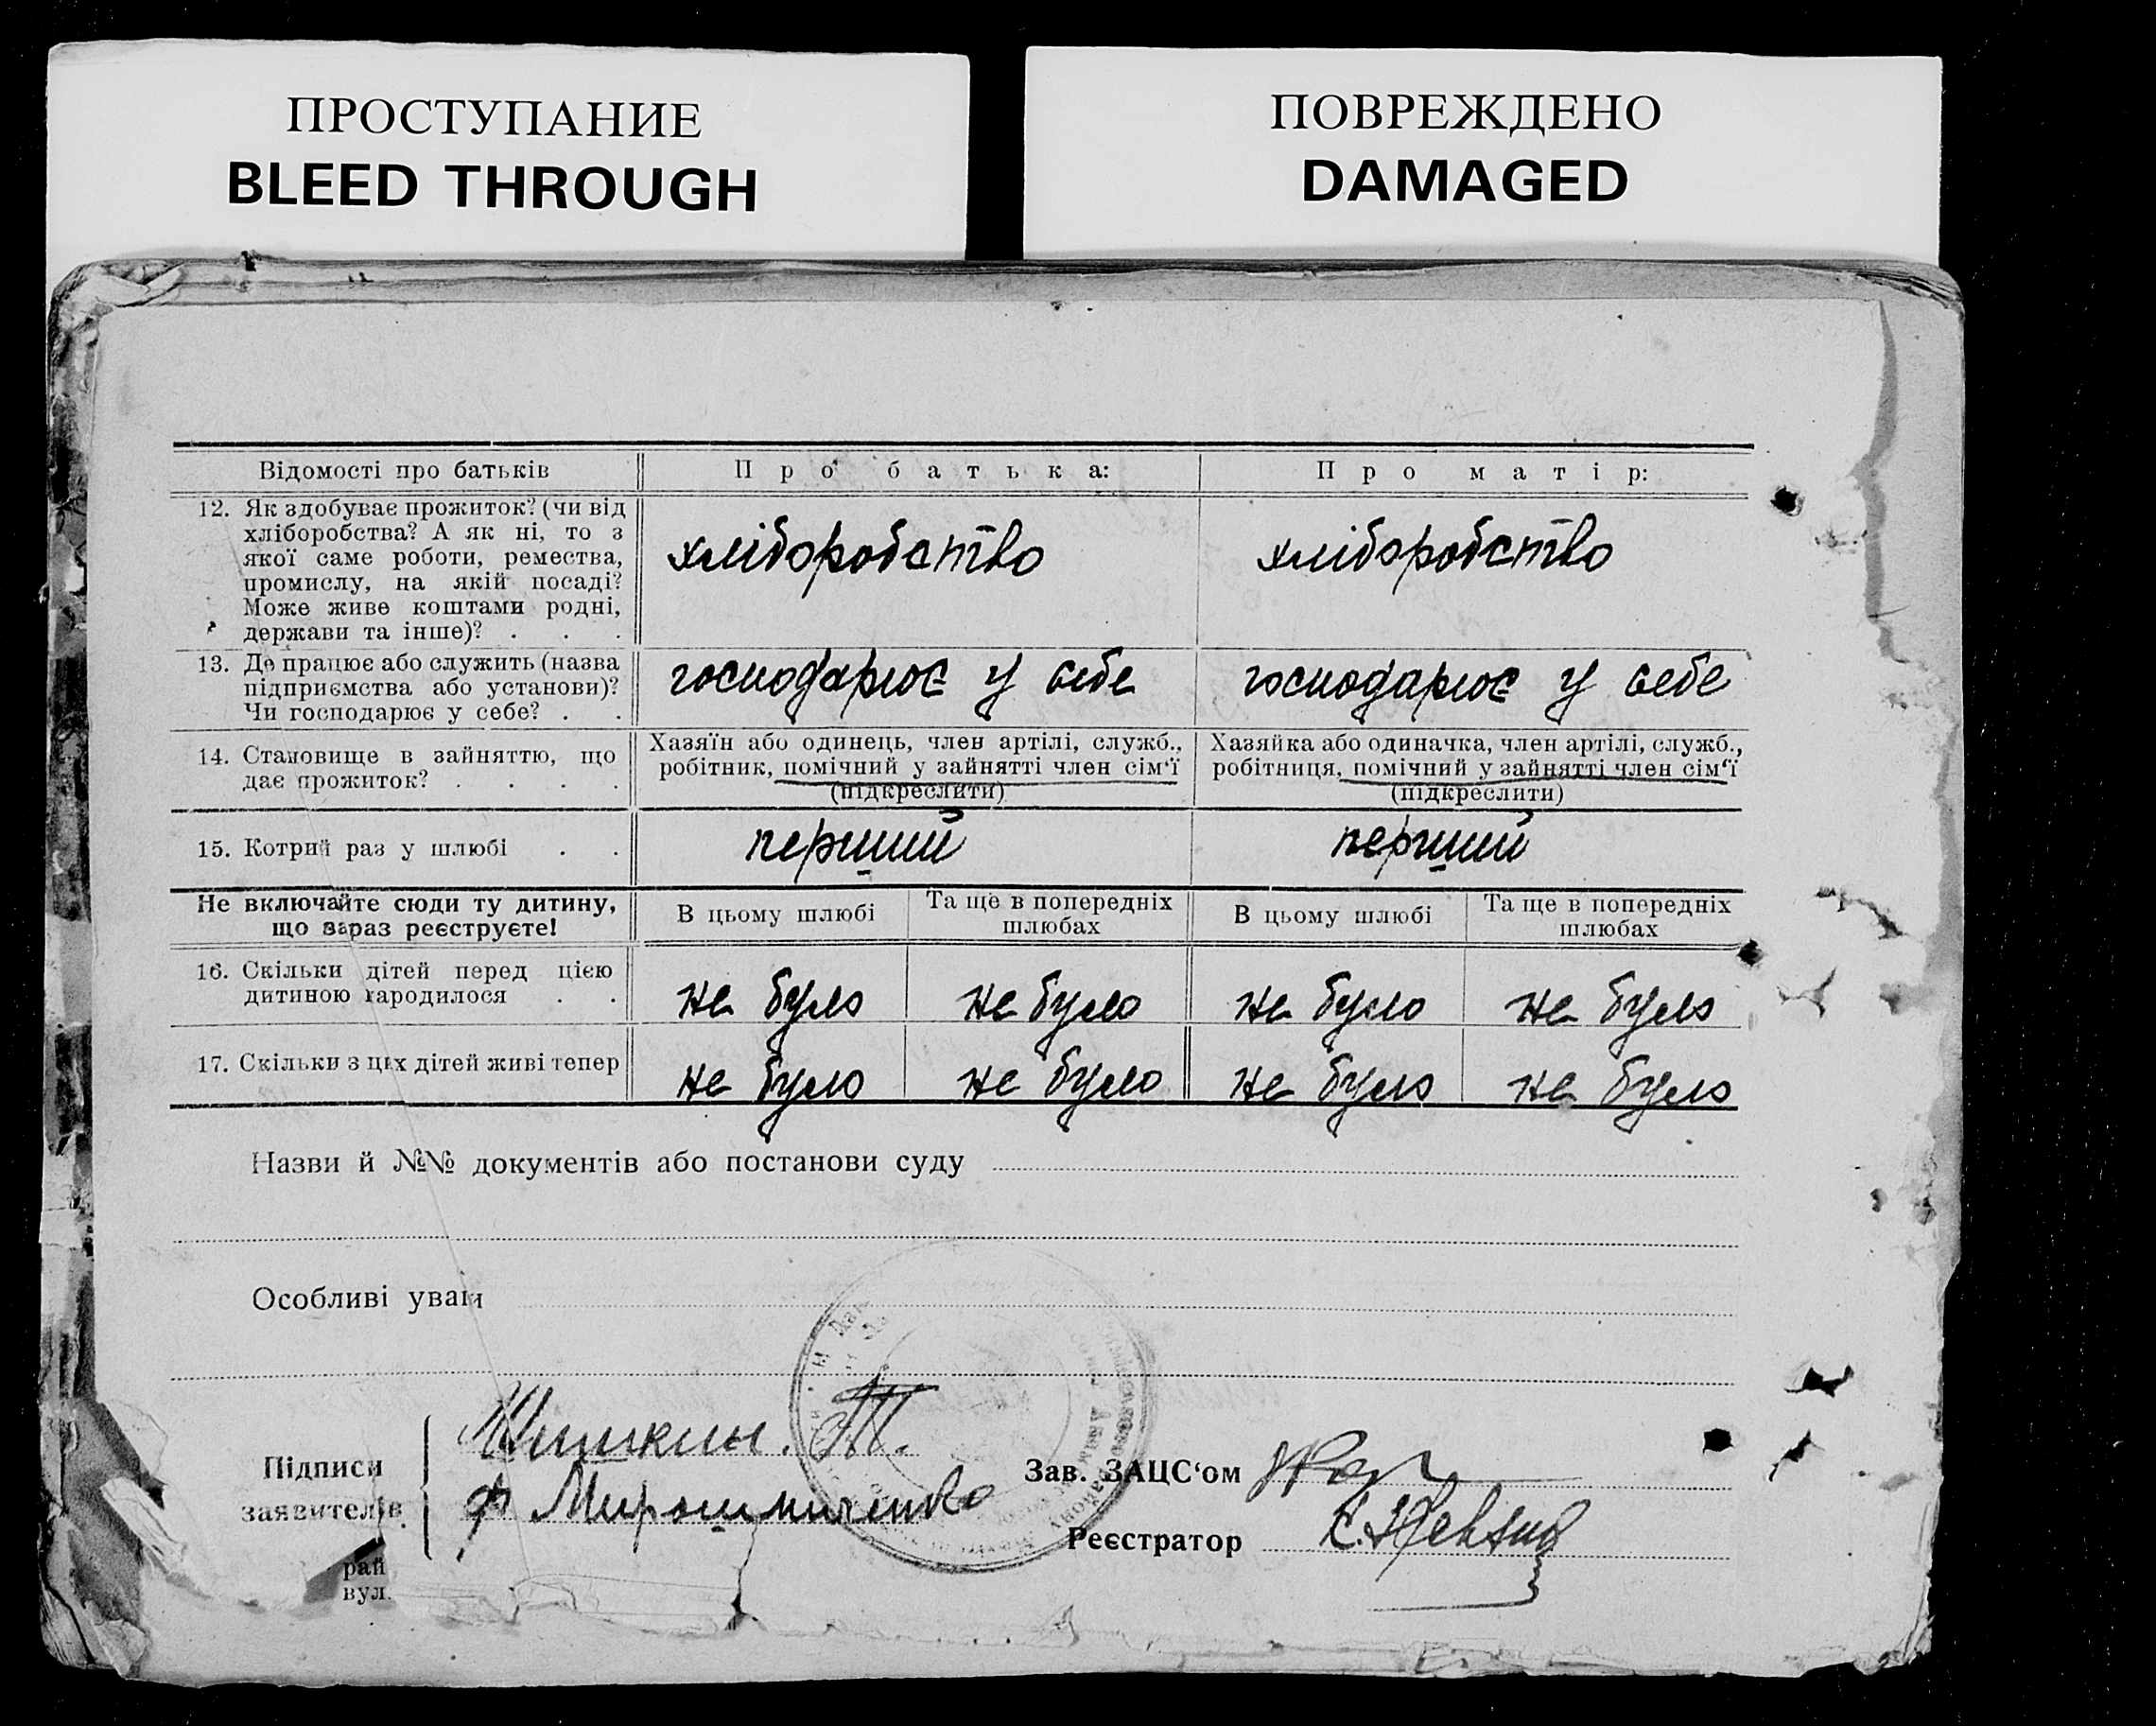 ПРОСТУПАНИЕ
BLEED THROUGH
ПОВРЕЖДЕНО
DAMAGED
Відомості про батьків
Про батька:
Про матір:
12. Як здобуває прожиток? (чи від
хліборобства? А як ні, то з
якої саме роботи, ремества,
промислу, на якій посаді?
Може живе коштами родні,
держави та інше)? . . .
хліборобство
хліборобство
13. Де працює або служить (назва
підприємства або установи)?
Чи господарює у себе? . .
господарює у себе
господарює у себе
14. Становище в зайняттю, що
дає прожиток? . . . .
Хазяїн або одинець, член артілі, служб.,
робітник, помічний у зайнятті член сім‘ї
(підкреслити)
Хазяйка або одиначка, член артілі, служб.,
робітниця, помічний у зайнятті член сім‘ї
(підкреслити)
15. Котрий раз у шлюбі . .
перший
перший
Не включайте сюди ту дитину,
що зараз реєструєте!
В цьому шлюбі
Та ще в попередніх
шлюбах
В цьому шлюбі
Та ще в попередніх
шлюбах
16. Скільки дітей перед цією
дитиною народилося . .
не було
не було
не було
не було
17. Скільки з цих дітей живі тепер
не було
не було
не було
не було
Назви й №№ документів або постанови суду
Особливі уваги
Підписи
заявителів
Шишкин. Т.
Ф Мирошниченко
Зав. ЗАЦС‘ом
Реєстратор
рай
вул.